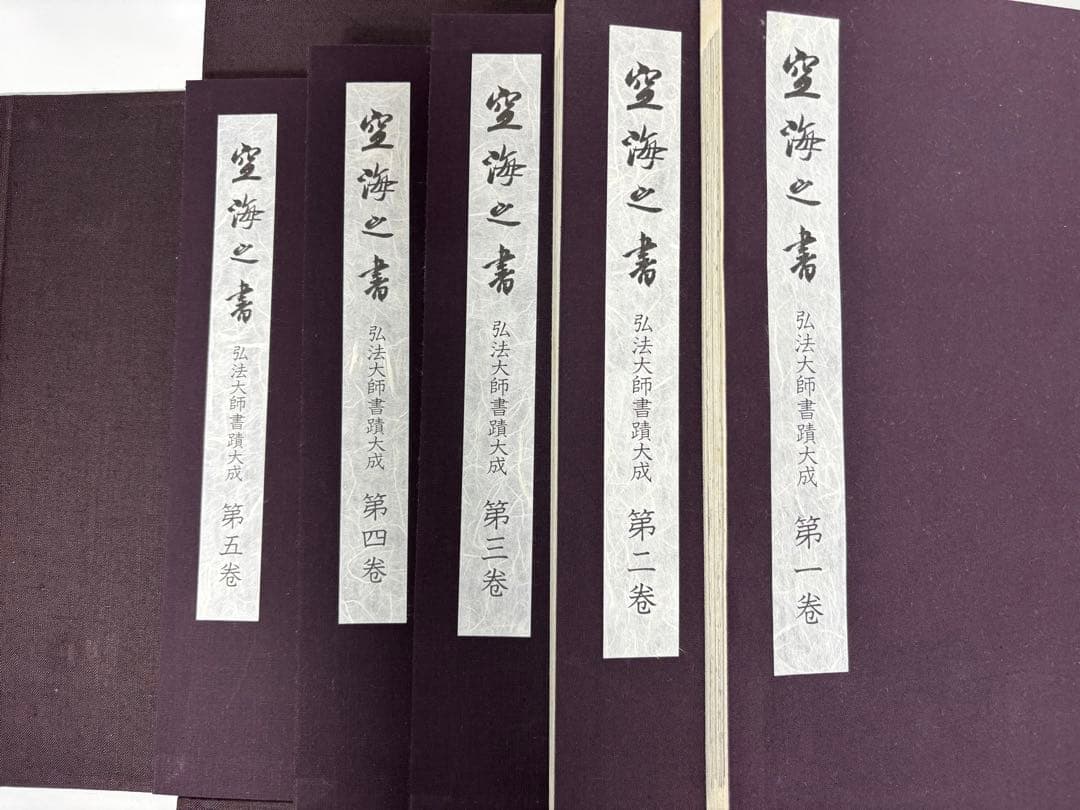 空海之書 弘法大師書蹟大成 第一巻
空海之書 弘法大師書蹟大成 第二巻
空海之書 弘法大師書蹟大成 第三巻
空海之書 弘法大師書蹟大成 第四巻
空海之書 弘法大師書蹟大成 第五巻